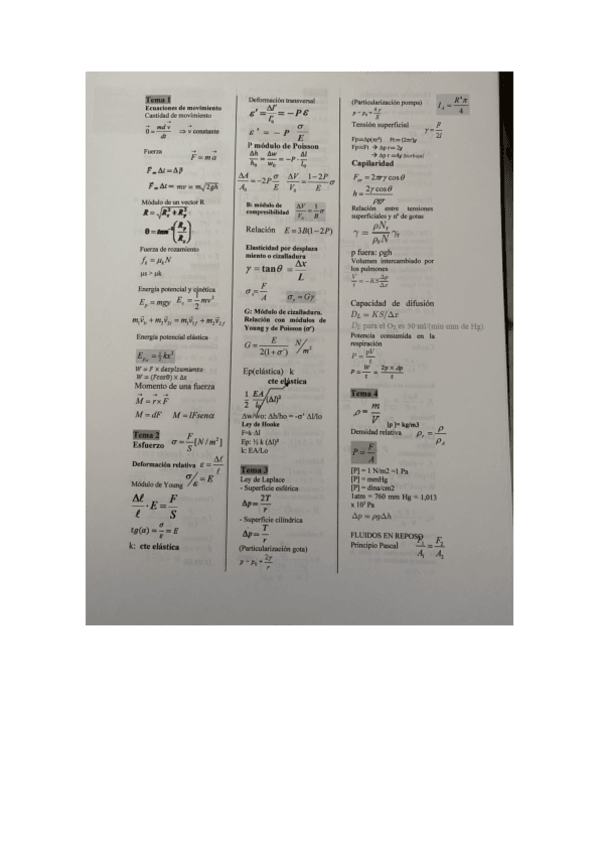 Tema 1
Ecuaciones de movimiento
Cantidad de movimiento
0 = md v / dt ⇒ v constante
Fuerza F = m a
F_m Δt = Δp
F_m Δt = mv = m√2gh
Módulo de un vector R
R = √R_x² + R_y²
θ = tan⁻¹(R_y / R_x)
Fuerza de rozamiento
f_k = μ_k N
μs > μk
Energía potencial y cinética
E_p = mgy E_c = 1/2 mv²
m₁v₁ᵢ + m₂v₂ᵢ = m₁v₁f + m₂v₂f
Energía potencial elástica
= 1/2 kx²
W = F × desplazamiento
W = (Fcosθ) × Δs
Momento de una fuerza
M = r × F
M = dF M = lFsenα
Tema 2
Esfuerzo σ = F/S [N/m²]
Deformación relativa ε = Δℓ/ℓ
Módulo de Young σ/ε = E
Δℓ/ℓ · E = F/S
tg(α) = σ/ε = E
k: cte elástica
Deformación transversal
ε' = Δl'/l'₀ = −P ε
ε' = − P σ/E
P módulo de Poisson
Δh/h₀ = Δw/w₀ = −P · Δl/l₀
ΔA/A₀ = −2P σ/E ΔV/V₀ = 1−2P/E σ
B: módulo de compresibilidad ΔV/V₀ = 1/B σ
Relación E = 3B(1−2P)
Elasticidad por desplaza
miento o cizalladura
γ = tan θ = Δx/L
= F/A = Gγ
G: Módulo de cizalladura.
Relación con módulos de
Young y de Poisson (σ')
G = E/2(1+σ') N/m²
Ep(elástico) k
cte elástica
1/2 EA/l₀ (Δl)²
Δw/wo: Δh/ho = -σ' Δl/lo
Ley de Hooke
F=k Δl
Ep: ½ k (Δl)²
k: EA/Lo
Tema 3
Ley de Laplace
- Superficie esférica
Δp = 2T/r
- Superficie cilíndrica
Δp = T/r
(Particularización gota)
p − p₀ = 2γ/r
(Particularización pompa)
I_A = R⁴π/4
Tensión superficial γ = F/2l
Capilaridad
= 2πrγ cosθ
h = 2γ cosθ / ρgr
Relación entre tensiones
superficiales y nº de gotas
p fuera: ρgh
Volumen intercambiado por
los pulmones
Capacidad de difusión
D_L = KS/Δx
D_L para el O₂ es 30 ml/(min mm de Hg)
Potencia consumida en la
respiración
P = pV/t
P = W/t = 2p × Δp / t
Tema 4
ρ = m/V [ρ]= kg/m3
Densidad relativa ρ_r = ρ/ρ_A
P = F/A
[P] = 1 N/m2 =1 Pa
[P] = mmHg
[P] = dina/cm2
1atm = 760 mm Hg = 1,013
x 10⁵ Pa
Δp = ρgΔh
FLUIDOS EN REPOSO
Principio Pascal F₁/A₁ = F₂/A₂